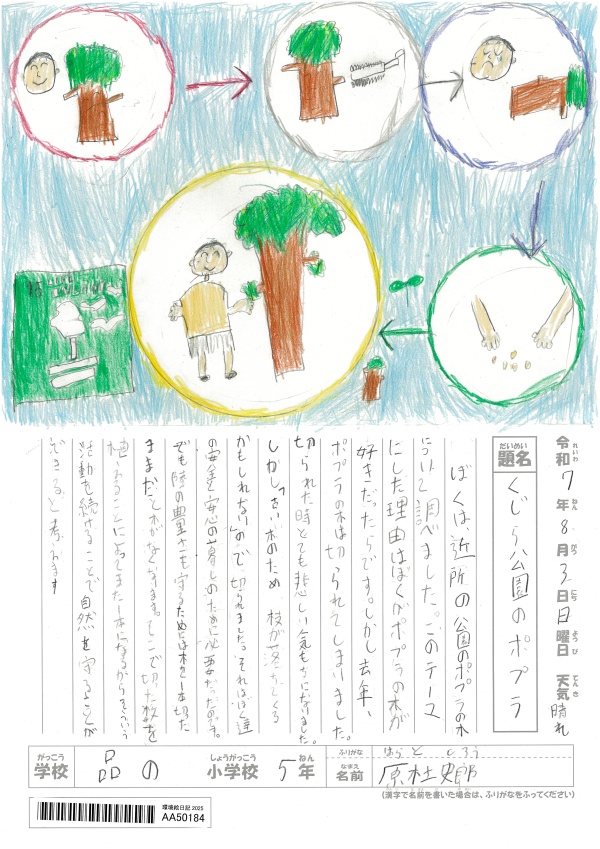 令和7年8月3日日曜日 天気 晴れ
れいわ ねん がつ にち ようび てんき
題名 くじら公園のポプラ
だいめい
ぼくは、近所の公園のポプラの木
について調べました。このテーマ
にした理由はぼくがポプラの木が
好きだったからです。しかし去年、
ポプラの木は切られてしまいました。
切られた時とても悲しい気もちになりました。
しかし「古い木のため、枝が落ちてくる
かもしれない」ので切られました。それはぼく達
の安全安心の暮しのために必要だったのです。
でも陸の豊かさを守るためには木を一本切った
ままだと木がなくなります。そこで切った枝を
植えることによってまた一本になるからそういう
活動を続けることで自然を守ることが
できると考えます
がっこう しょうがっこう ねん ふりがな
学校 品の 小学校 5年
なまえ
名前
(漢字で名前を書いた場合は、ふりがなをふってください)
環境絵日記 2025
AA50184